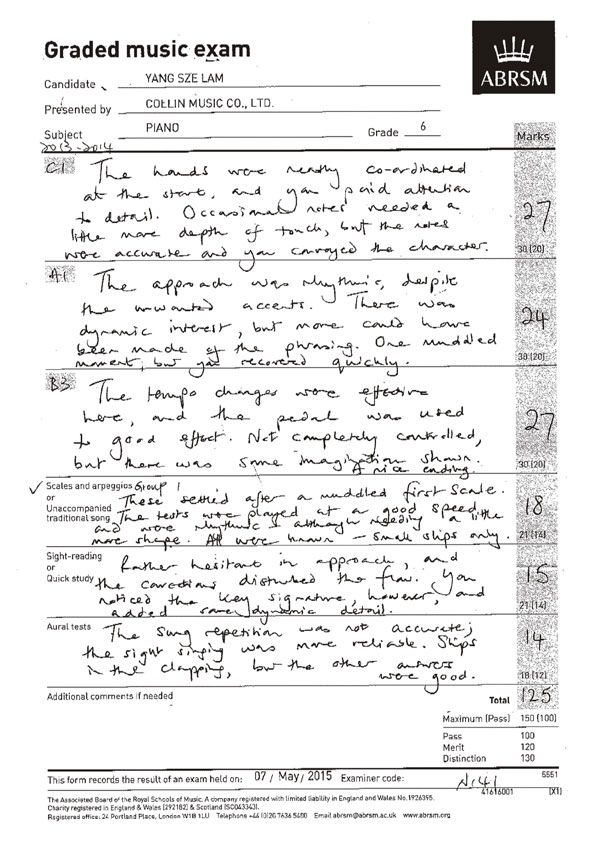 Graded music exam
ABRSM
Candidate YANG SZE LAM
Presented by COLLIN MUSIC CO., LTD.
Subject PIANO Grade 6
Marks
2013-2014
C1 The hands were neatly co-ordinated
at the start, and you paid attention
to detail. Occasional notes needed a
little more depth of touch, but the notes
were accurate and you conveyed the character.
27
30 (20)
A1 The approach was rhythmic, despite
the unwanted accents. There was
dynamic interest, but more could have
been made of the phrasing. One muddled
moment, but you recovered quickly.
24
30 (20)
B3 The tempo changes were effective
here, and the pedal was used
to good effect. Not completely controlled,
but there was some imagination shown.
A nice ending.
27
30 (20)
✓ Scales and arpeggios Group 1
or
Unaccompanied
traditional song
These settled after a muddled first scale.
The tests were played at a good speed,
and were rhythmic, although needing a little
more shape. All were known - small slips only.
18
21 (14)
Sight-reading
or
Quick study
Rather hesitant in approach, and
the corrections disturbed the flow. You
noticed the key signature, however, and
added some dynamic detail.
15
21 (14)
Aural tests
The sung repetition was not accurate;
the sight singing was more reliable. Slips
in the clapping, but the other answers
were good.
14
18 (12)
Additional comments if needed
Total 125
Maximum (Pass) 150 (100)
Pass 100
Merit 120
Distinction 130
This form records the result of an exam held on: 07 / May / 2015 Examiner code: N141 5551
41616001 (X1)
The Associated Board of the Royal Schools of Music. A company registered with limited liability in England and Wales No.1926395.
Charity registered in England & Wales (292182) & Scotland (SC043343).
Registered office: 24 Portland Place, London W1B 1LU Telephone +44 (0)20 7636 5400 Email abrsm@abrsm.ac.uk www.abrsm.org